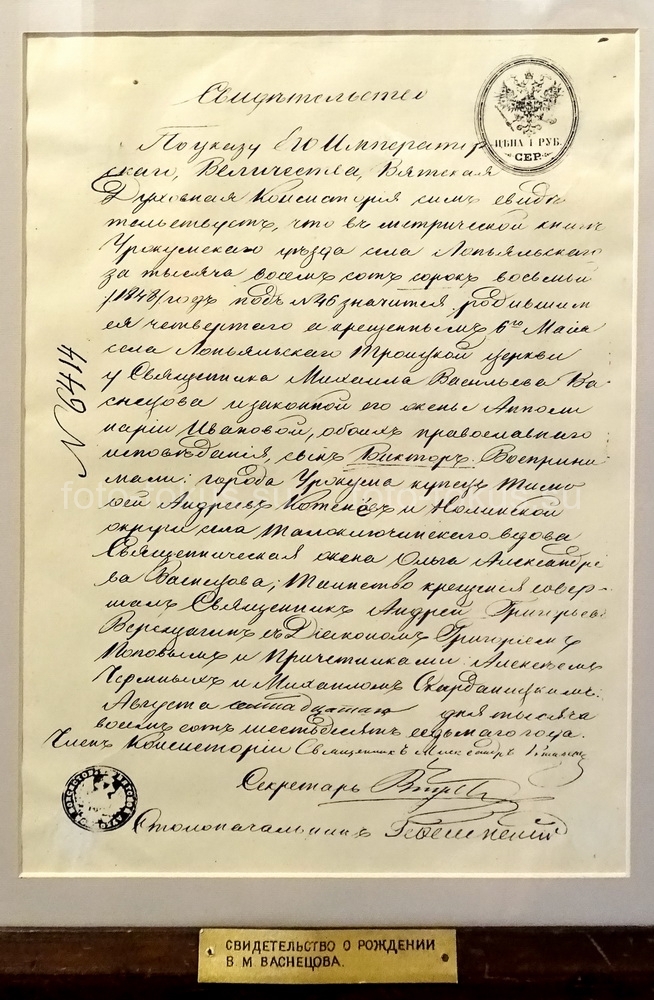 Свидѣтельство
ЦѢНА 1 РУБ.
СЕР.
По указу Его Император
скаго, Величества, Вятская
Духовная Консисторія симъ свидѣ
тельствуетъ, что въ метрической книгѣ
Уржумскаго уѣзда села Лопьяльскаго
за тысяча восемь сотъ сорокъ восьмый
/1848/ годъ подъ №46 значится, родившим
ся четвертаго а крещеннымъ 6го Маія
села Лопьяльскаго Троицкой церкви
у Священника Михаила Васильева Ва
снецова и законной его жены Аполли
наріи Ивановой, обоихъ православнаго
исповѣданія, сынъ Викторъ. Восприни
мали: города Уржума купецъ Тимо
ѳей Андреевъ и Нолинской
округи села Талоключинскаго вдова
Священническая жена Ольга Александро
ва Васнецова; Таинство крещенія совер-
шалъ Священникъ Андрей Григорьевъ
Верещагинъ съ Діакономъ Григоріемъ
Поповымъ и Причетниками: Алексѣемъ
и Михаиломъ
Августа дня тысяча
восемь сотъ шестьдесятъ седьмаго года.
Членъ Консисторіи Священникъ Александръ
Секретарь
Столоначальникъ
№ 6414
СВИДЕТЕЛЬСТВО О РОЖДЕНИИ
В. М. ВАСНЕЦОВА.